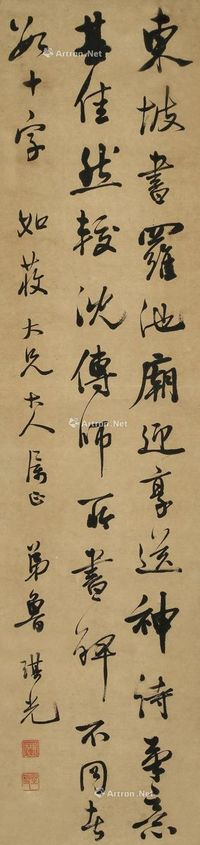 東坡書羅池廟迎享送神詩筆意
甚佳然較沈傳師所書碑不同者
數十字
如蓀大兄大人屬正
弟魯琪光
Artron.Net